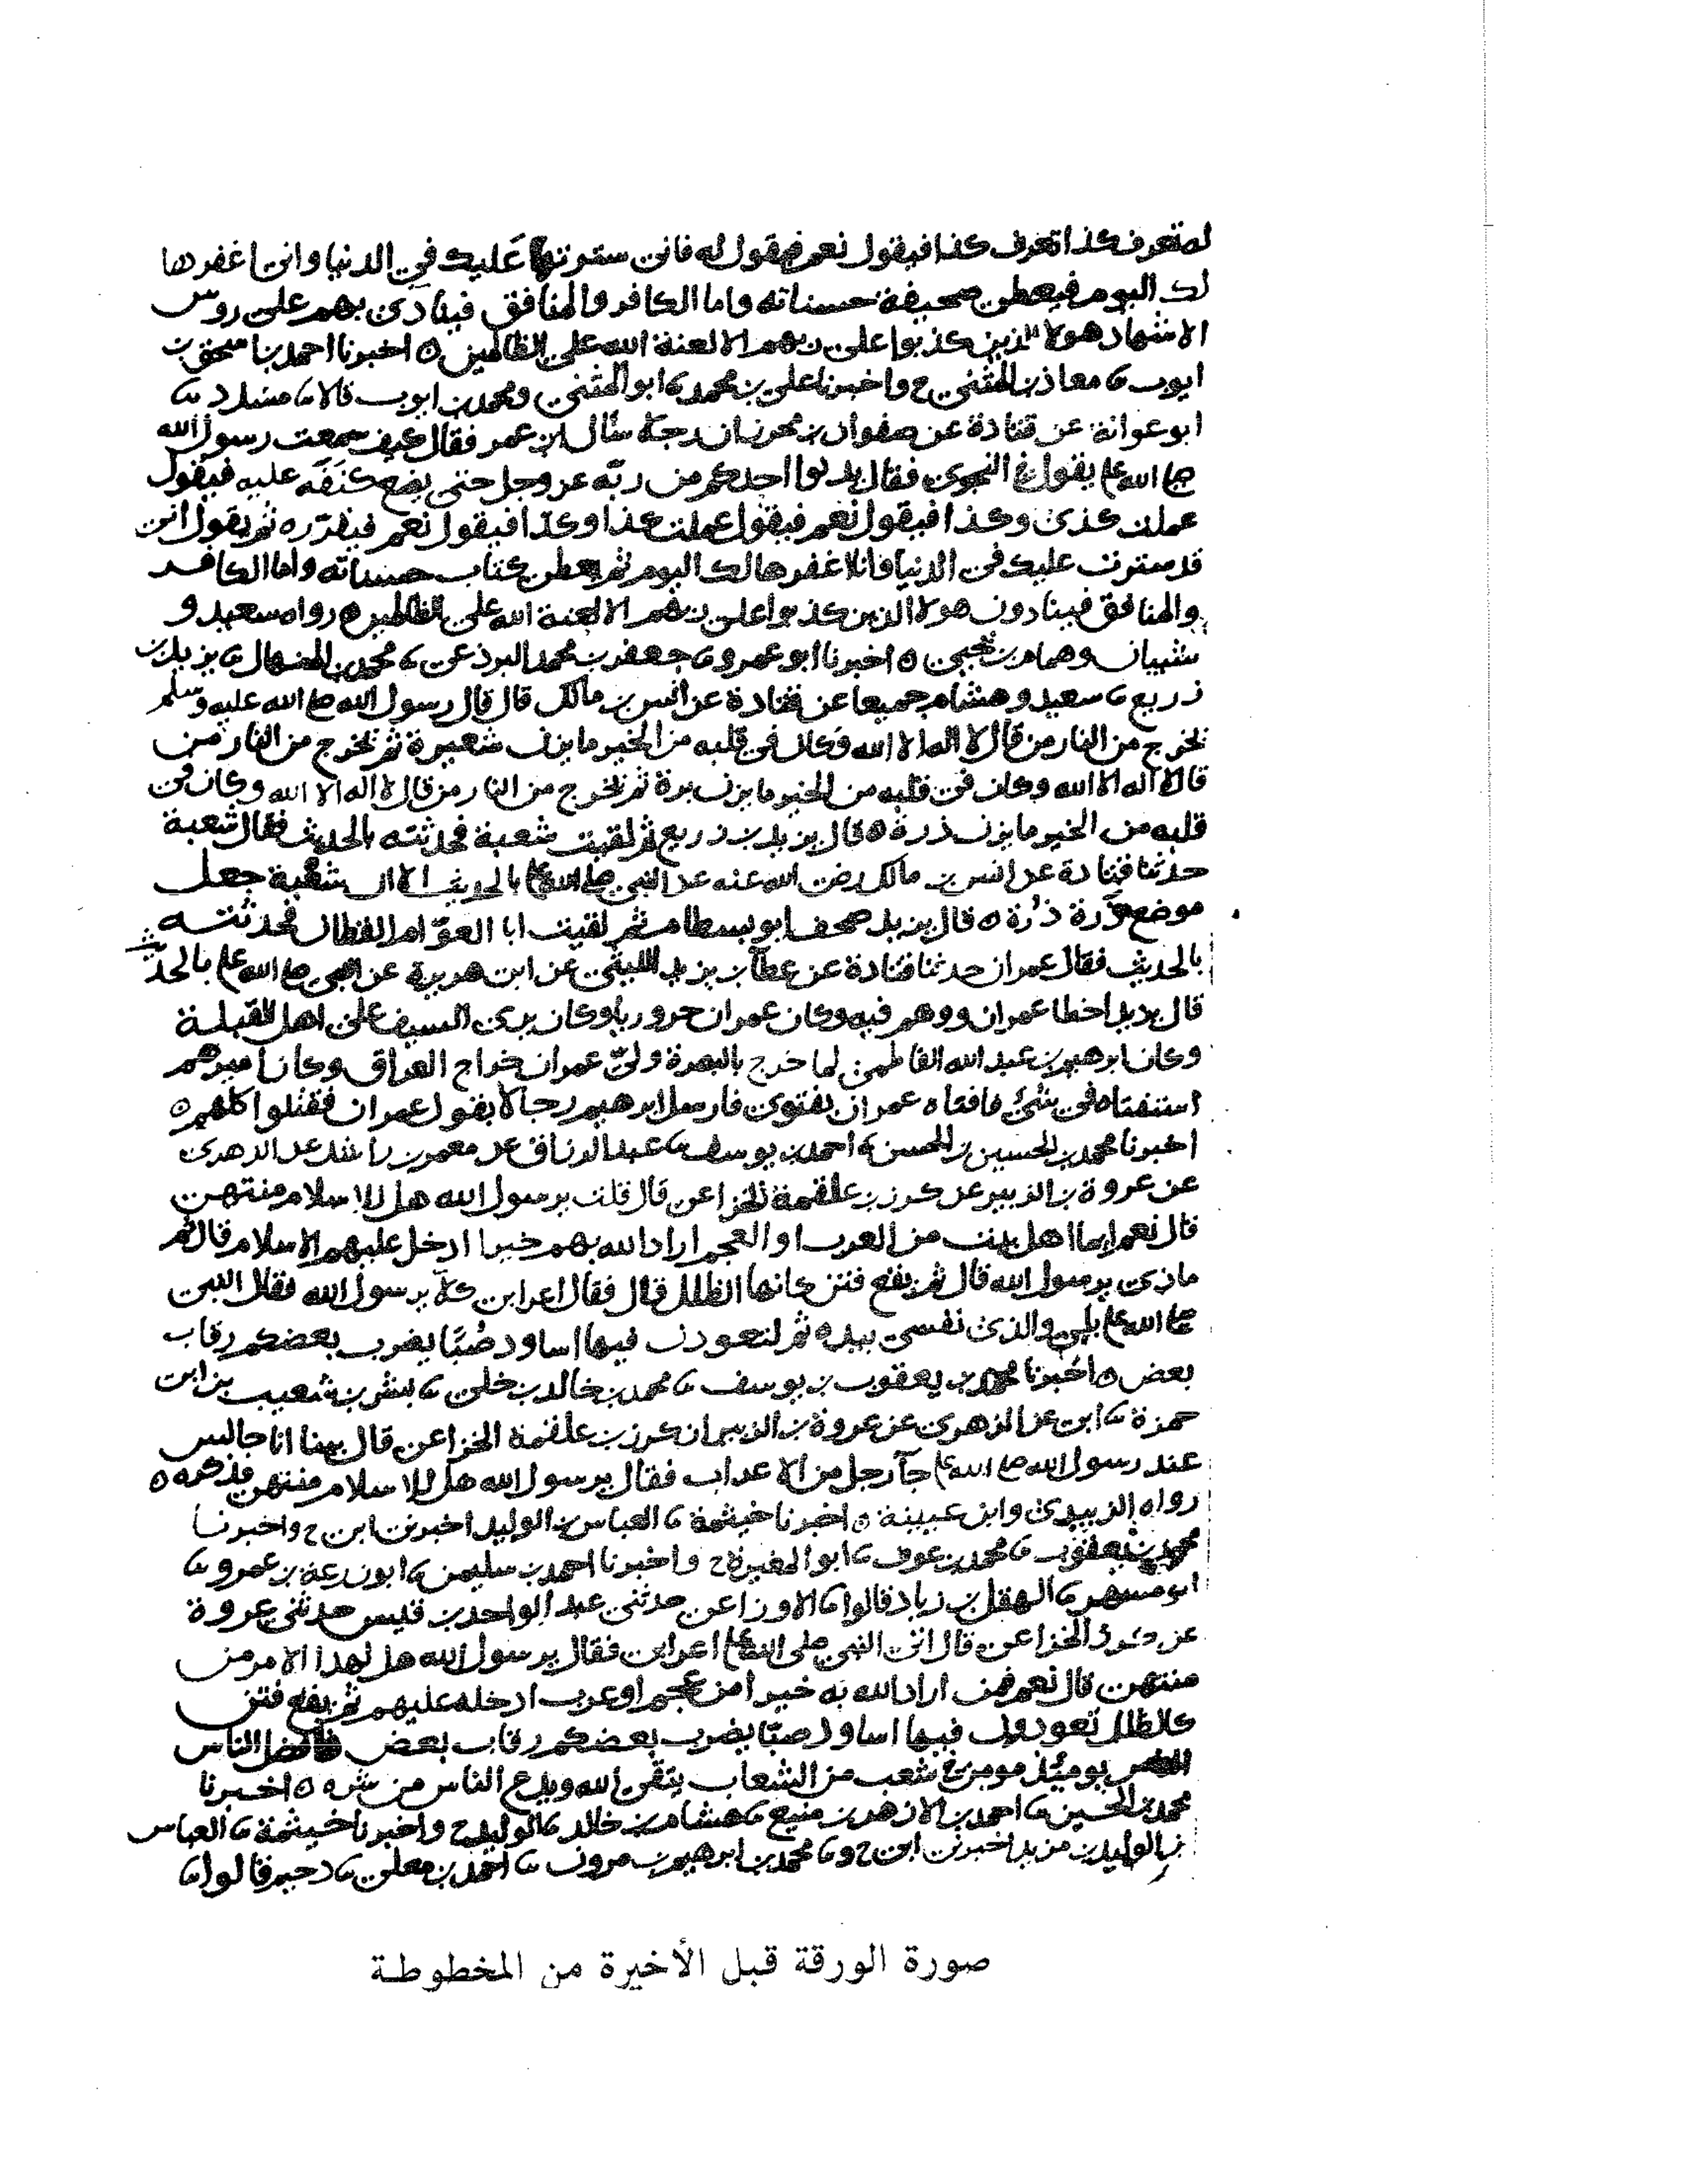 له تعرف كذا تعرف كذا فيقول نعم فيقول له فاني سترتها عليك في الدنيا واني اغفرها
لك اليوم فيعطى صحيفة حسناته واما الكافر والمنافق فينادى بهم على روس
الاشهاد هولا الذين كذبوا على ربهم الا لعنة الله على الظالمين ه اخبرنا احمد بن اسحق بن
ايوب ثنا معاذ بن المثنى ح واخبرنا على بن محمد ثنا ابو المثنى ومحمد بن ايوب قالا ثنا مسدد ثنا
ابو عوانة عن قتادة عن صفوان بن محرز ان رجلا سأل ابن عمر فقال كيف سمعت رسول الله
صلى الله عليه يقول في النجوى فقال يدنوا احدكم من ربّه عز وجل حتى يضع كَنَفَه عليه فيقول
عملت كذى وكذا فيقول نعم فيقول عملت كذا وكذا فيقول نعم فيقرّره ثم يقول انى
قد سترت عليك في الدنيا وانا اغفرها لك اليوم ثم يعطى كتاب حسناته واما الكافر
والمنافق فينادون هولا الذين كذبوا على ربهم الا لعنة الله على الظالمين ه رواه سعيد و
شيبان وهمام بن يحيى ه اخبرنا ابو عمرو ثنا جعفر بن محمد البرذعى ثنا محمد بن المنهال ثنا يزيد بن
زريع ثنا سعيد وهشام جميعا عن قتادة عن انس بن مالك قال قال رسول الله صلى الله عليه وسلم
يخرج من النار من قال لا اله الا الله وكان في قلبه من الخير ما يزن شعيرة ثم يخرج من النار من
قال لا اله الا الله وكان في قلبه من الخير ما يزن برة ثم يخرج من النار من قال لا اله الا الله وكان في
قلبه من الخير ما يزن ذرة ه قال يزيد بن زريع ثم لقيت شعبة فحدثته بالحديث فقال شعبة
حدثنا قتادة عن انس بن مالك رضى الله عنه عن النبي صلى الله عليه بالحديث الا ان شعبة جعل
موضع ذرة ذُرة ه قال يزيد صحف ابو بسطام ثم لقيت ابا العوّام القطان فحدثته
بالحديث فقال عمران حدثنا قتادة عن عطآ بن يزيد الليثي عن ابى هريرة عن النبي صلى الله عليه بالحديث
قال يزيد اخطا عمران ووهم فيه وكان عمران حروريا وكان يرى السيف على اهل القبلة
وكان ابرهيم بن عبد الله الفاطمى لما خرج بالبصرة ولىّ عمران خراج العراق وكان اميرهم
استفتاه في شئ فافتاه عمران بفتوى فارسل ابرهيم رجالا بقول عمران فقتلوا كلهم ه
اخبرنا محمد بن الحسين بن الحسن ثنا احمد بن يوسف ثنا عبد الرزاق عن معمر بن راشد عن الزهرى
عن عروة بن الزبير عن كرز بن علقمة الخزاعى قال قلت يرسول الله هل للاسلام منتهى
قال نعم ايما اهل بيت من العرب او العجم اراد الله بهم خيرا ادخل عليهم الاسلام قال ثم
ماذى يرسول الله قال ثم يقع فتن كانها الظلل قال فقال اعرابى كلآ يرسول الله فقال النبى
صلى الله عليه بلى والذى نفسى بيده ثم لتعودن فيها اساود صُبًّا يضرب بعضكم رقاب
بعض ه اخبرنا محمد بن يعقوب بن يوسف ثنا محمد بن خالد بن خلى ثنا بشر بن شعيب بن ابى
حمزة ثنا ابى عن الزهرى عن عروة بن الزبير ان كرز بن علقمة الخزاعى قال بينا انا جالس
عند رسول الله صلى الله عليه جآ رجل من الاعراب فقال يرسول الله هل للاسلام منتهى فذكره ه
رواه الزبيدى وابن عيينة ه اخبرنا خيثمة ثنا العباس بن الوليد اخبرنى ابى ح واخبرنا
محمد بن يعقوب ثنا محمد بن عوف ثنا ابو المغيرة ح واخبرنا احمد بن سليمن ثنا ابو زرعة بن عمرو ثنا
ابو مسهر ثنا الهقل بن زياد قالوا ثنا الاوزاعى حدثنى عبد الواحد بن قيس حدثنى عروة
عن كرز الخزاعى قال اتى النبي صلى الله عليه اعرابى فقال يرسول الله هل لهذا الامر من
منتهى قال نعم فمن اراد الله به خيرا من عجم او عرب ادخله عليهم ثم يقع فتن
كالظلل تعودون فيها اساود صبّا يضرب بعضكم رقاب بعض فافضل الناس
يومئذ مومن في شعب من الشعاب يتقى الله ويدع الناس من شره ه اخبرنا
محمد بن الحسين ثنا احمد بن الازهر بن منيع ثنا هشام بن خالد ثنا الوليد ح واخبرنا خيثمة ثنا العباس
بن الوليد بن مزيد اخبرنى ابى ح وثنا محمد بن ابرهيم بن مرون ثنا احمد بن معلى ثنا دحيم قالوا ثنا
صورة الورقة قبل الأخيرة من المخطوطة